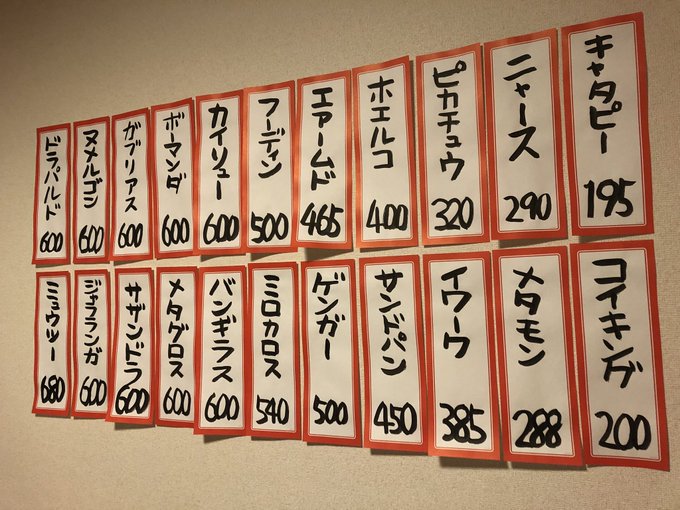 キャタピー 195
ニャース 290
ピカチュウ 320
ホエルコ 400
エアームド 465
フーディン 500
カイリュー 600
ボーマンダ 600
ガブリアス 600
ヌメルゴン 600
ドラパルド 600
コイキング 200
メタモン 288
イワーク 385
サンドパン 450
ゲンガー 500
ミロカロス 540
バンギラス 600
メタグロス 600
サザンドラ 600
ジャラランガ 600
ミュウツー 680